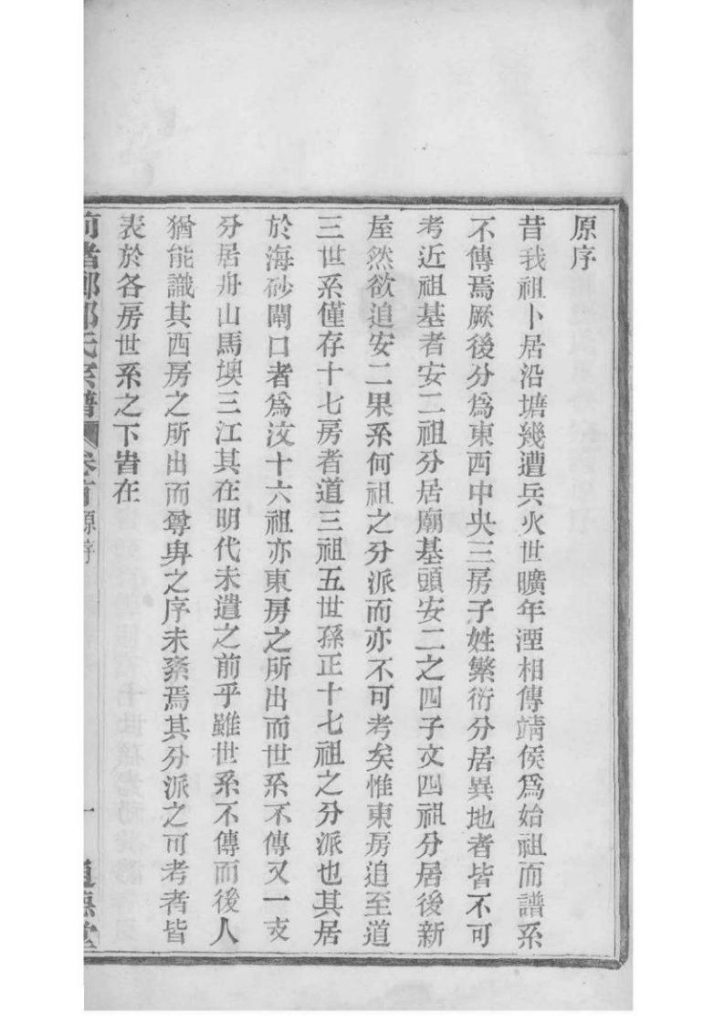 原序
昔我祖卜居沿塘幾遭兵火世曠年湮相傳靖侯爲始祖而譜系
不傳焉厥後分爲東西中央三房子姓繁衍分居異地者皆不可
考近祖基者安二祖分居廟基頭安二之四子文四祖分居後新
屋然欲追安二果系何祖之分派而亦不可考矣惟東房追至道
三世系僅存十七房者道三祖五世孫正十七祖之分派也其居
於海砂閘口者爲汶十六祖亦東房之所出而世系不傳又一支
分居舟山馬墺三江其在明代未遣之前乎雖世系不傳而後人
猶能識其西房之所出而尊卑之序未紊焉其分派之可考者皆
表於各房世系之下皆在
氏宗譜 卷首 原序 一 道德堂